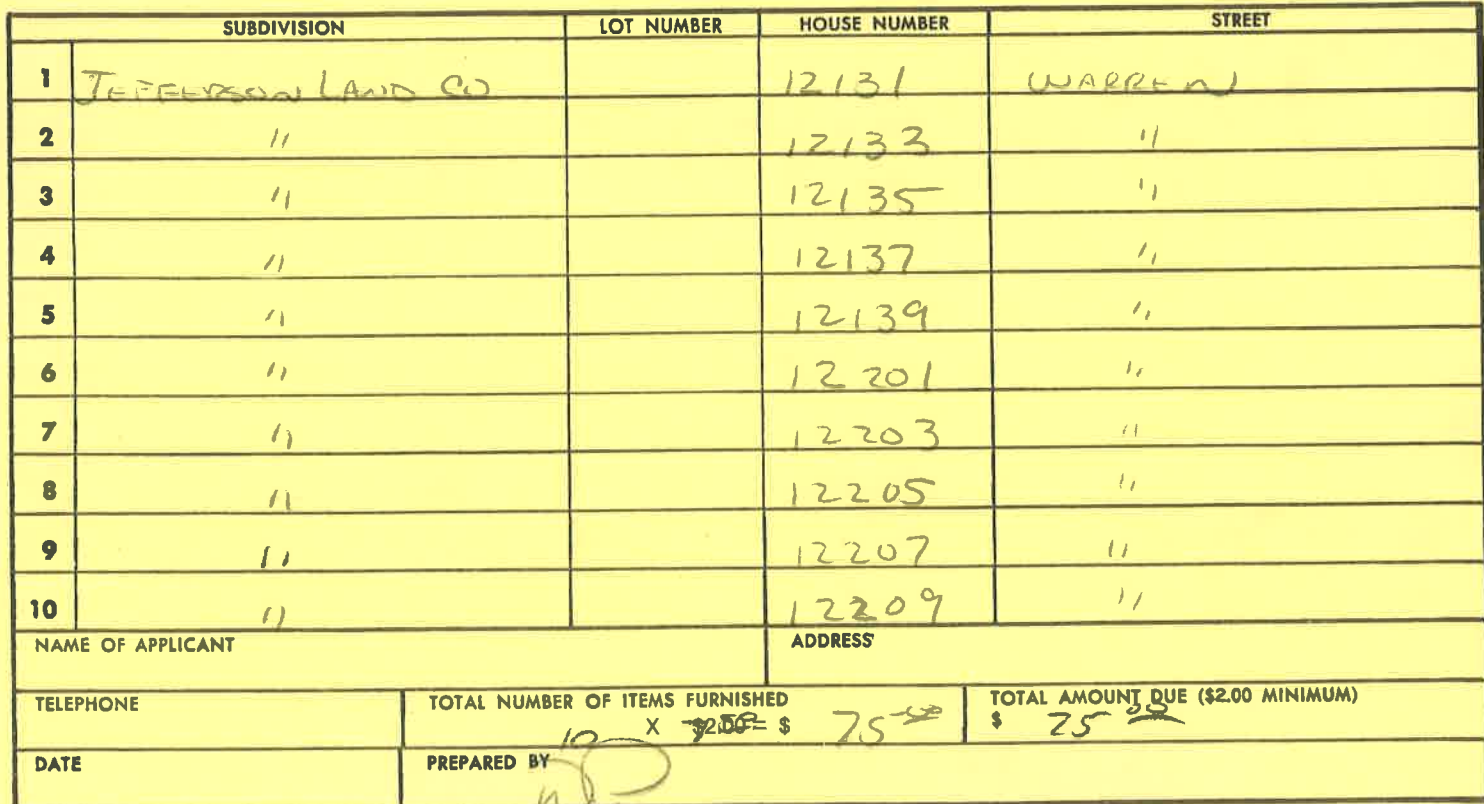 SUBDIVISION LOT NUMBER HOUSE NUMBER STREET
1 JEFFERSON LAND CO 12131 WARREN
2 " 12133 "
3 " 12135 "
4 " 12137 "
5 " 12139 "
6 " 12201 "
7 " 12203 "
8 " 12205 "
9 " 12207 "
10 " 12209 "
NAME OF APPLICANT ADDRESS
TELEPHONE TOTAL NUMBER OF ITEMS FURNISHED TOTAL AMOUNT DUE ($2.00 MINIMUM)
10 X $2.00 = $ 75 $ 75
DATE PREPARED BY